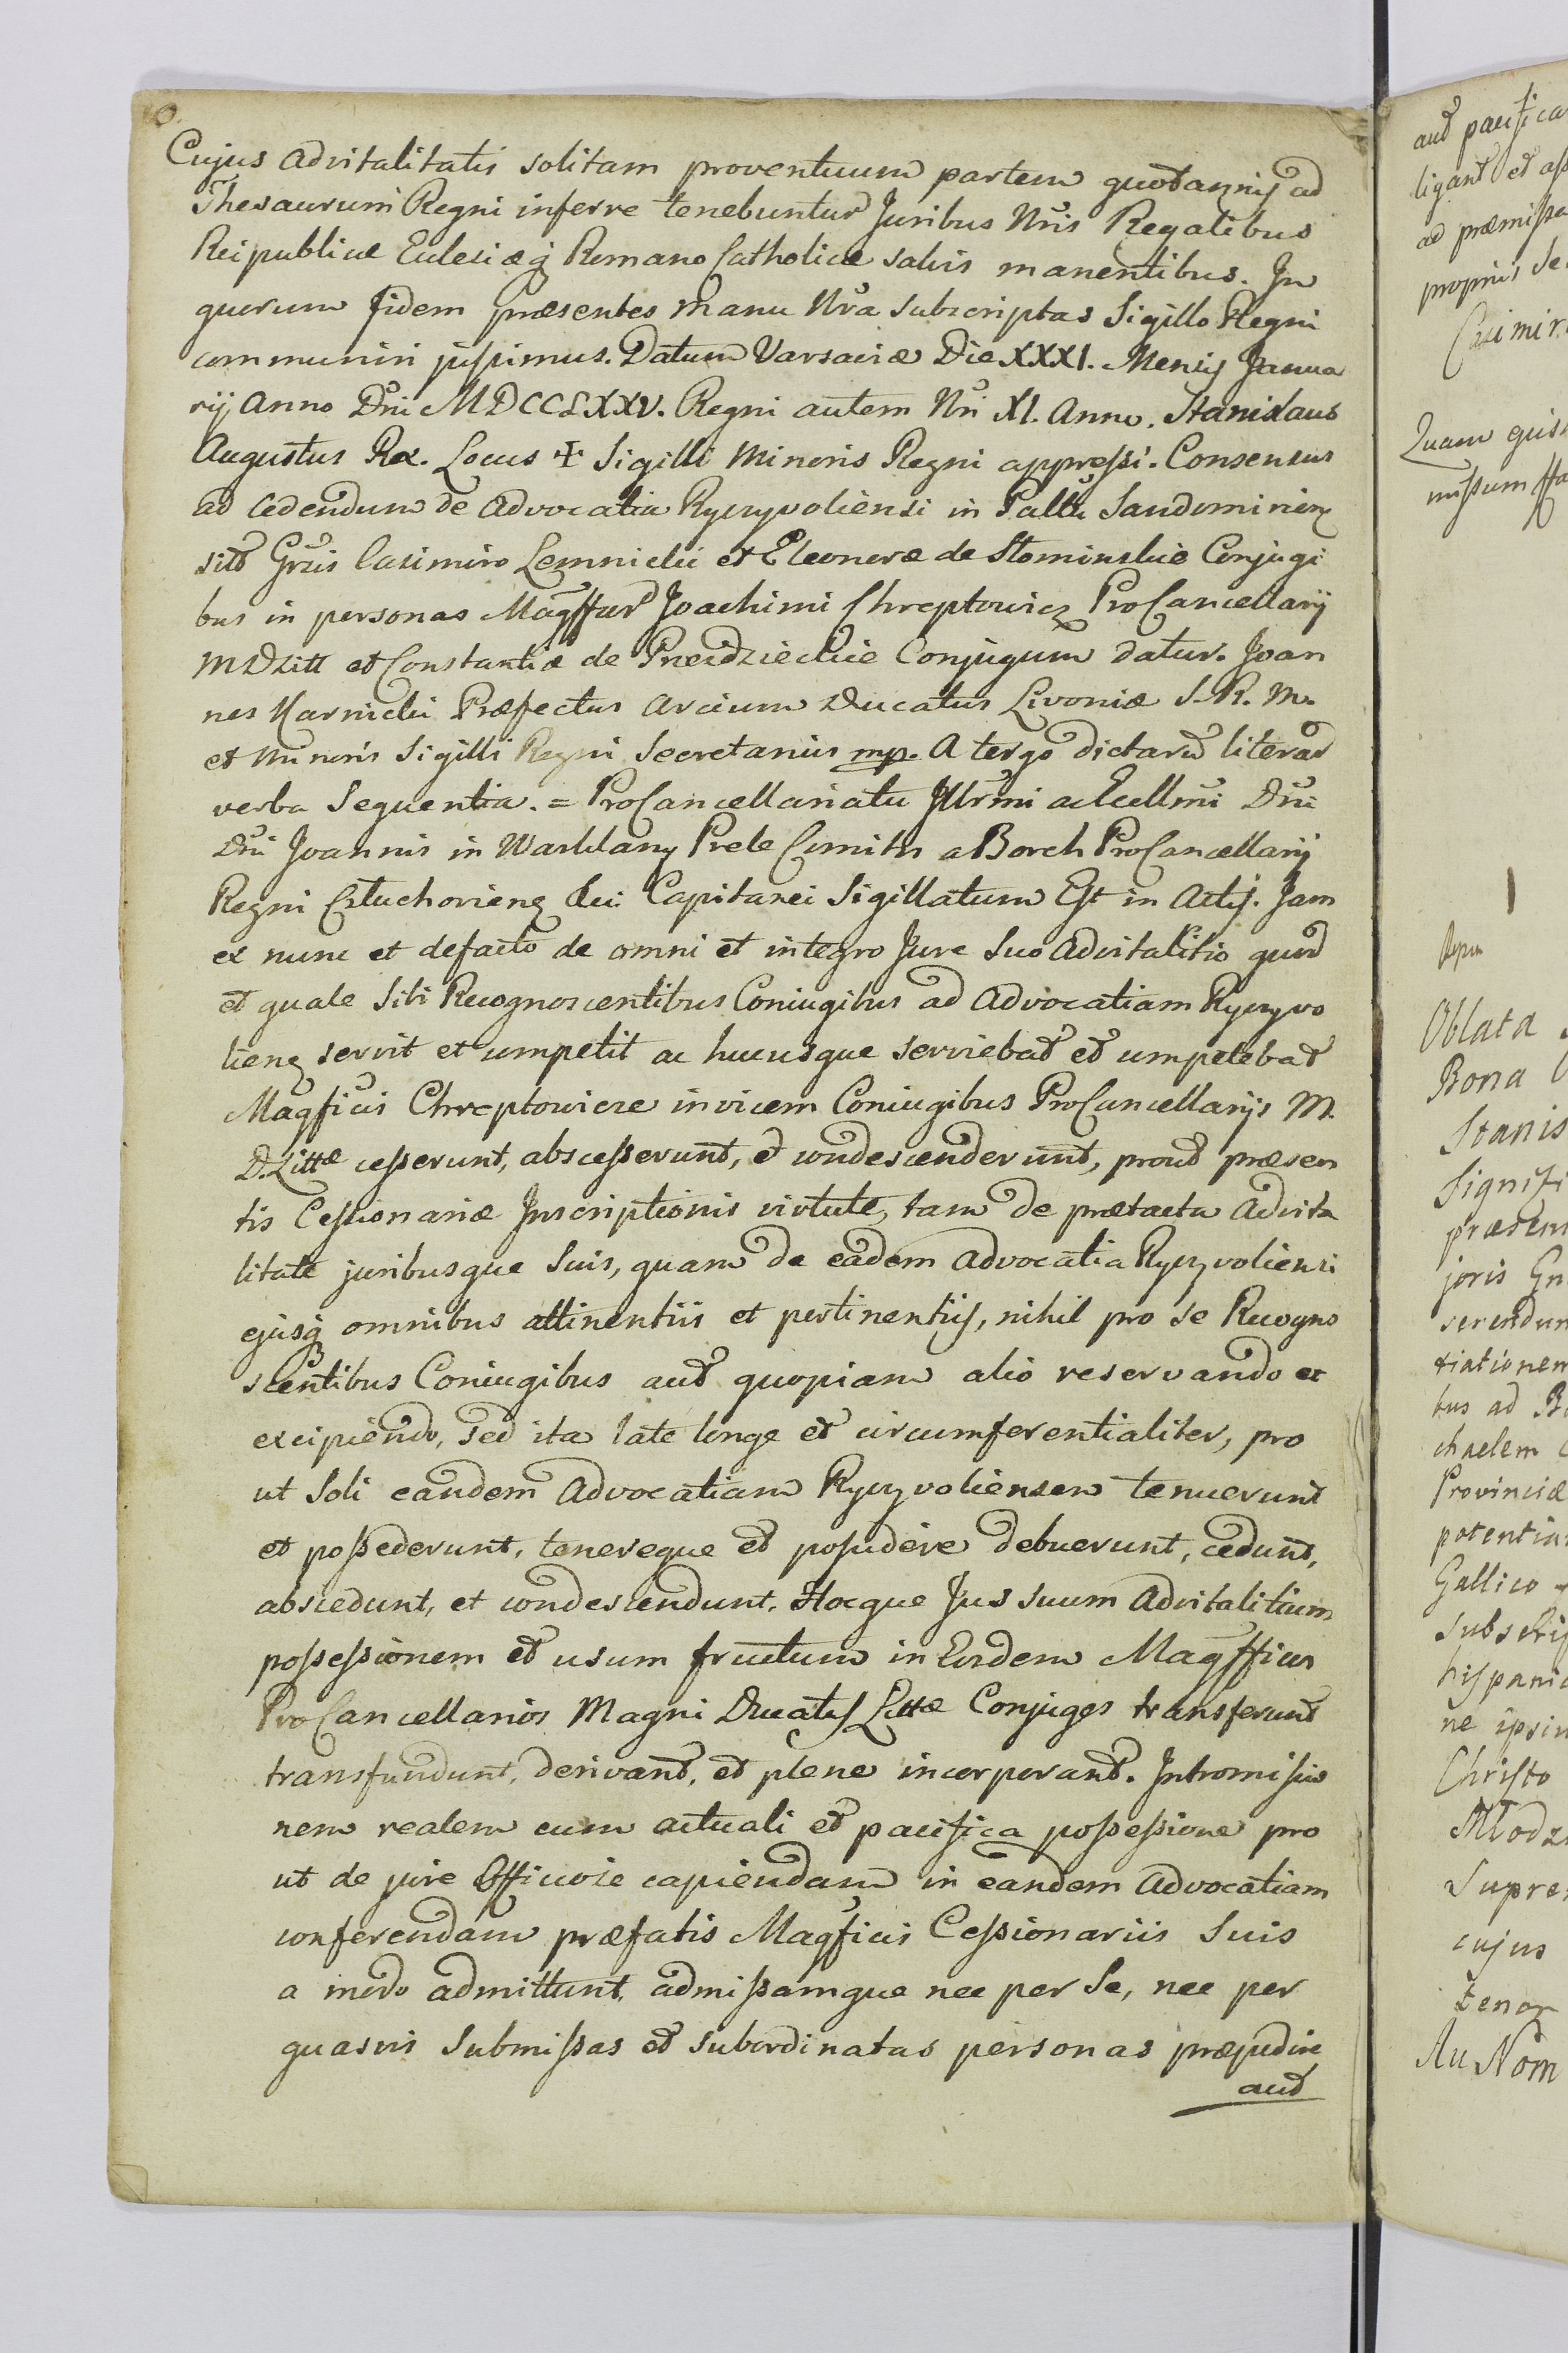 Cujus advitalitatis solitam proventuum partem quotannis ad
Thesaurum Regni inferre tenebuntur Juribus Nris Regalibus
Reipublicæ Eclesiæq Romano Catholicæ salvis manentibus. In
quorum fidem præsentes Manu Nra Subscriptas Sigillo Regni
communiri jussimus. Datum Varsaviæ Die XXXI. Mensis Janua
rij Anno Dni MDCCLXXV. Regni autem Nri XI. Anno. Stanislaus
Augustus Rex. Locus ☩ Sigilli Minoris Regni appressi. Consensus
ad Cedendum de Advocatia Ryczyvoliensi in Pallu Sandomirien
sito Grsis Casimiro Lemnicki et Eleonoræ de Slominskie Conjugi
bus in personas Magffcar Joachimi Chreptowicz ProCancellarij
MDLitt et Constantiæ de Przezdzieckie Conjugum datur. Joan
nes Karnicki Præfectus Arcium Ducatus Livoniæ S. R. M.
et Minoris Sigilli Regni Secretarius mp. A tergo dictaru literar
verba Sequentia. = ProCancellariatu Illrmi ac Ecellmi Dni
Dni Joannis in Warklany Prele Comitis a Borch ProCancellarij
Regni Capitanei Sigillatum Est in Actis. Jam
ex nunc et defacto de omni et integro Jure Suo Advitalitio quod
et quale Sibi Recognoscentibus Coniugibus ad Advocatiam Ryczyvo
lien servit et competit ac hucusque serviebat et competebat
Magficis Chreptowicze invicem Coniugibus ProCancellarijs M.
D. Littæ cesserunt, abscesserunt, et condescenderunt, prout præsen
tis Cessionariæ Inscriptionis virtute, tam de prætacta Advita
litate juribusque Suis, quam de eadem Advocatia Ryczyvoliensi
ejusq omnibus attinentiis et pertinentijs, nihil pro se Recogno
scentibus Coniugibus aut quopiam alio reservando et
excipiendo, sed ita late longe et circumferentialiter, pro
ut Soli eandem Advocatiam Ryczyvoliensem tenuerunt
et possederunt, tenereque et posidere debuerunt, cedunt,
abscedunt, et condescendunt. Hocque Jus suum Advitalitium
possessionem et usum fructum in Eosdem Magfficos
ProCancellarios Magni Ducatus Littæ Conjuges transferunt
transfundunt, derivant, et plene incorporant. Intromissio
nem realem cum actuali et pacifica possessione pro
ut de jure Officiose capiendam in eandem Advocatiam
conferendam præfatis Magficis Cessionariis Suis
a modo admittunt, admissamque nec per Se, nec per
quasvis Submissas et subordinatas personas præpedire
aut
aut pacifica
ligant et ass
ad præmissa
propriis
Casimir
Quam quid
missum
Oblata
Bona
Stanis
Signifi
præsen
joris Gn
serendum
tiationem
bus ad B
chaelem
Provinciæ
potentia
Gallico
Subscrip
hispanic
ne ipsiu
Christo
Mlodz
Supre
cujus
tenor
Au Nom